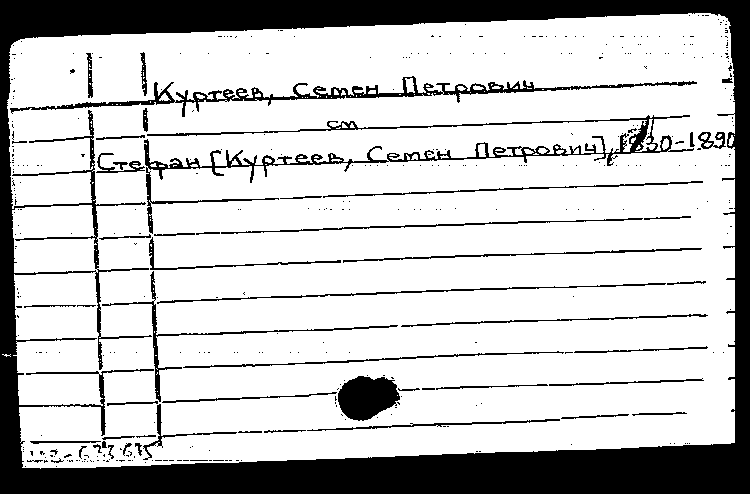 Куртеев, Семен Петрович
см
Стефан [Куртеев, Семен Петрович], 1830-1890